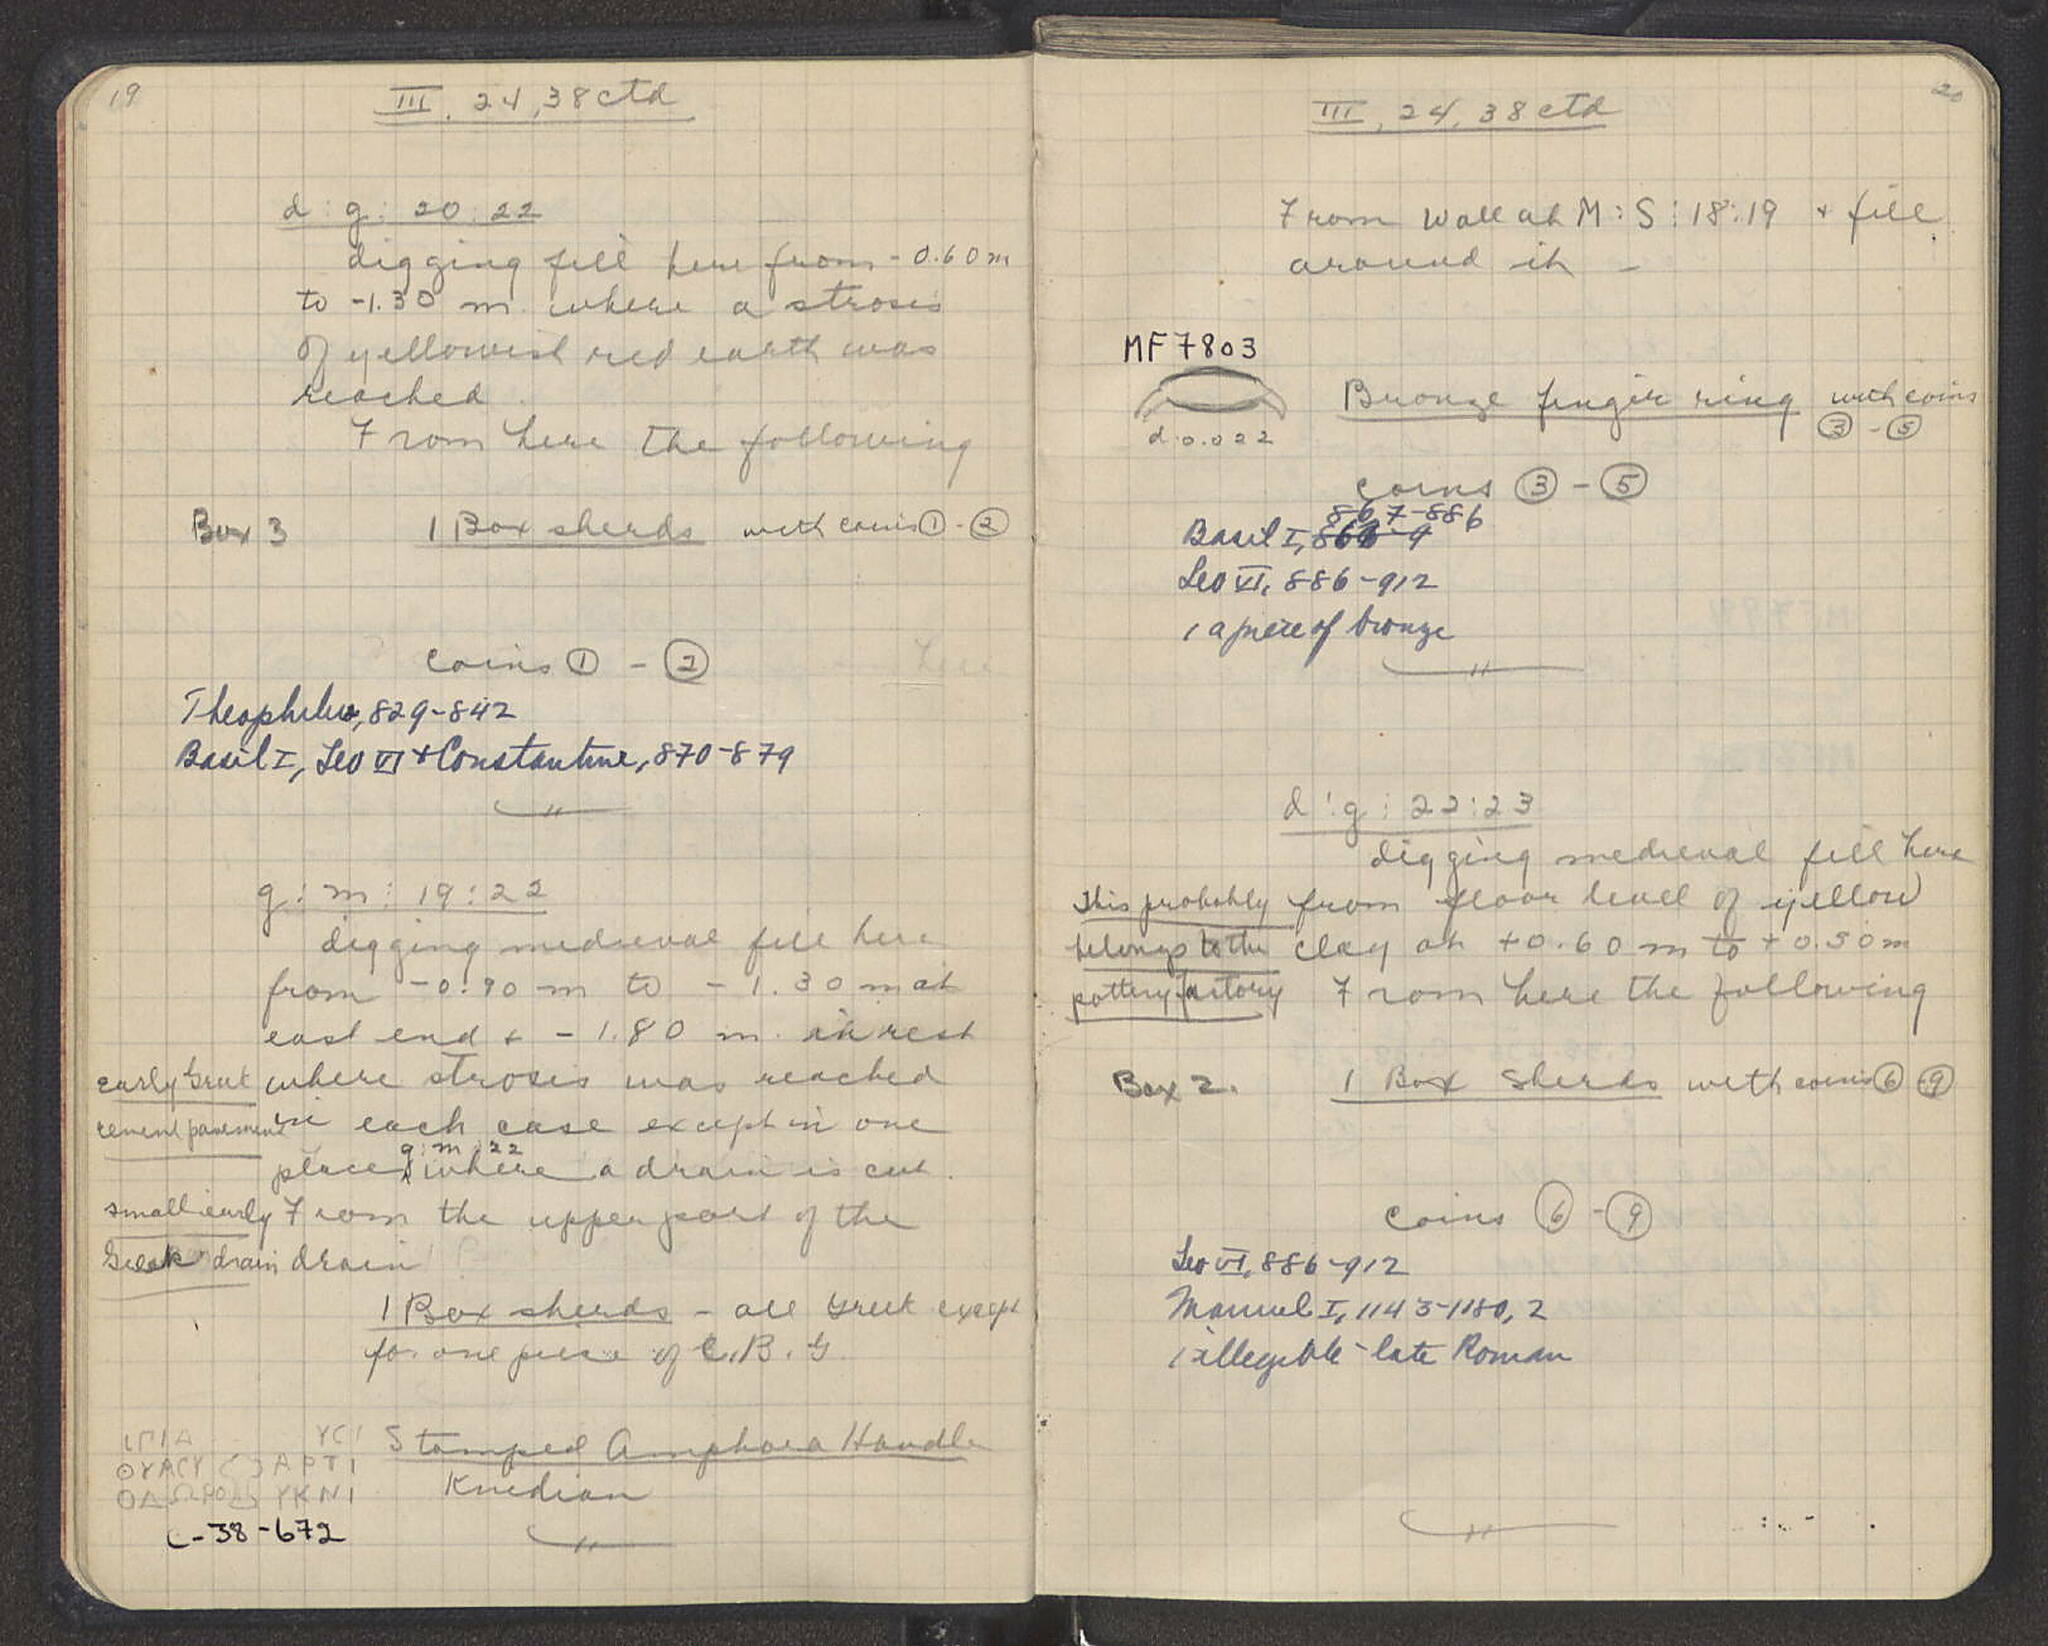 19
III, 24, 38 ctd
d : g : 20 : 22
digging fill here from - 0.60 m
to -1.30 m where a stroses
of yellowish red earth was
reached.
From here the following
Box 3 1 Box sherds with coins ① - ②
coins ① - ②
Theophilus, 829-842
Basil I, Leo VI + Constantine, 870-879
g : m : 19 : 22
digging medieval fill here
from -0.90 m to - 1.30 m at
east end + - 1.80 m. in rest
early Greek where stroses was reached
cement pavement in each case except in one
g : m : 22
place ^ where a drain is cut.
small early From the upper part of the
Greek drain drain
1 Box sherds - all Greek except
for one piece of C.B.G
YCI
APTI
ΥΚΝΙ
Stamped Amphora Handle
Knidian
C-38-672
20
III, 24, 38 ctd
From wall at M : S : 18 : 19 + fill
around it -
MF 7803
d. 0.022
Bronze finger ring with coins
③ - ⑤
coins ③ - ⑤
867-886
Basil I, 868-9
Leo VI, 886-912
1 a piece of bronze
d : g : 22 : 23
digging medieval fill here
This probably from floor level of yellow
belongs to the clay at +0.60 m to +0.50 m
pottery factory From here the following
Box 2. 1 Box Sherds with coins ⑥ - ⑨
coins ⑥ - ⑨
Leo VI, 886-912
Manuel I, 1143-1180, 2
1 illegible - late Roman